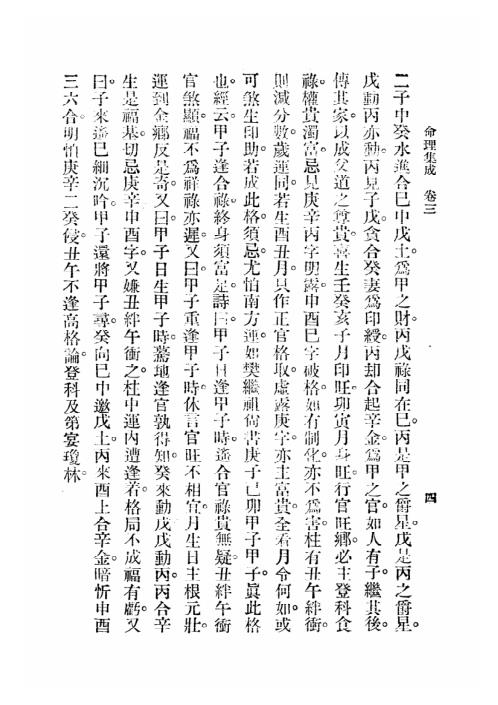 命理集成 卷三
四
二子中癸水遙合巳中戊土。爲甲之財。丙戊祿同在巳。丙是甲之爵星。戊是丙之爵星。
戊動丙亦動。丙見子戊。貪合癸妻爲印綬。丙却合起辛金。爲甲之官。如人有子。繼其後。
傳其家。以成父道之尊貴。喜生壬癸亥子月印旺。卯寅月身旺。行官旺鄉。必主登科食
祿。權貴濁富。忌見庚辛丙字明露。申酉巳字破格。如有制化。亦不爲害。柱有丑午絆衝。
則減分數。歲運同。若生酉丑月。只作正官格取。虛露庚字。亦主富貴。全看月令何如。或
可煞生印助。若成此格。須忌。尤怕南方運。如樊繼祖尙書。庚子己卯甲子甲子。眞此格
也。經云。甲子逢合祿。終身須富足。詩曰。甲子日逢甲子時。遙合官祿貴無疑。丑絆午衝
官煞顯。福不爲祥祿亦遲。又曰。甲子重逢甲子時。休言官旺不相宜。月生日主根元壯。
運到金鄉反是奇。又曰。甲子日生甲子時。驀地逢官孰得知。癸來動戊戊動丙。丙合辛
生是福基。切忌庚辛申酉字。又嫌丑絆午衝之。柱中運內遭逢若。格局不成福有虧。又
曰。子來遙巳細沉吟。甲子還將甲子尋。癸向巳中邀戊土。丙來酉上合辛金。暗忻申酉
三六合。明怕庚辛二癸侵。丑午不逢高格論。登科及第宴瓊林。